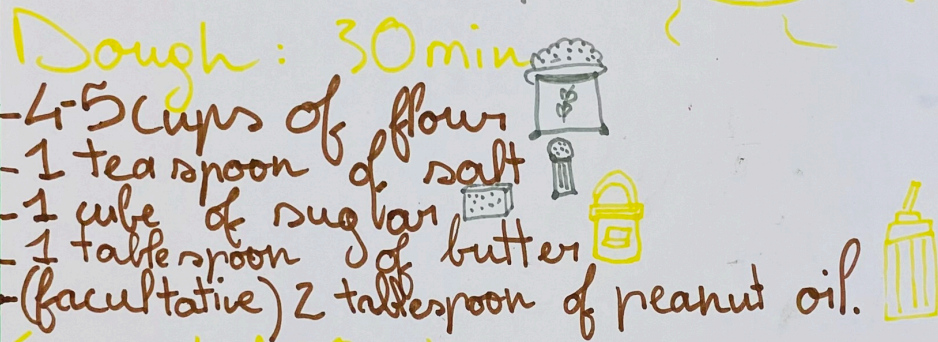 Dough: 30min
-4-5 cups of flour
-1 teaspoon of salt
-1 cube of sugar
-1 tablespoon of butter
-(facultative) 2 tablespoon of peanut oil.